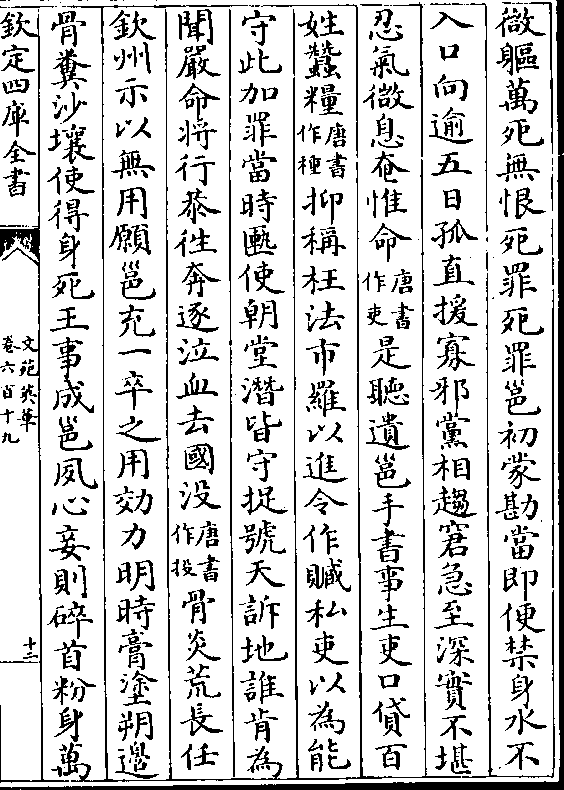 微軀萬死無恨死罪死罪邕初蒙勘當即便禁身水不
入口向逾五日孤直援寡邪黨相趨窘急至深實不堪
忍氣微息奄惟命唐書作吏是聽遺邕手書事生吏口貸百
姓蠶糧唐書作種抑稱枉法市羅以進令作贓私吏以為能
守此加罪當時匭使朝堂潛皆守捉號天訴地誰肯為
聞嚴命將行恭徃奔逐泣血去國没唐書作投骨炎荒長任
欽州示以無用願邕充一卒之用効力明時膏塗朔邊
骨糞沙壤使得身死王事成邕夙心妾則碎首粉身萬
欽定四庫全書
文苑英華
卷六百十九
十二